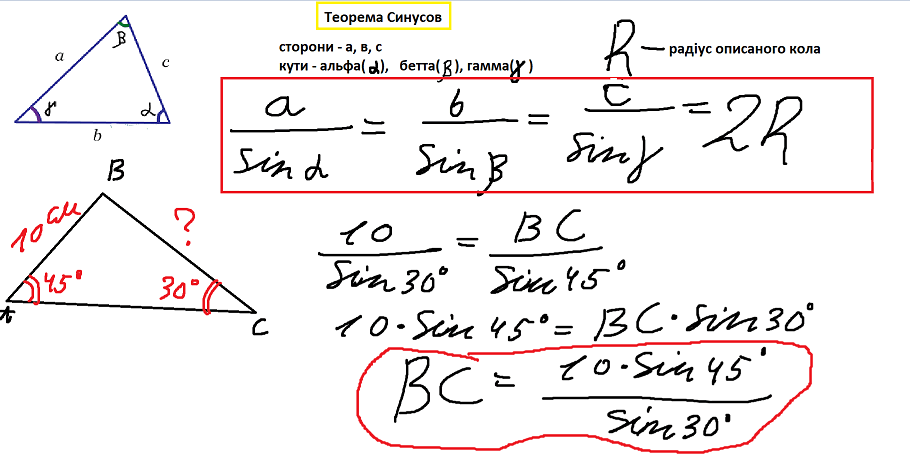 Теорема Синусов
сторони - а, в, с
кути - альфа(α), бетта(β), гамма(γ)
R — радіус описаного кола
a
β
c
γ
α
b
a/sin α = b/sin β = c/sin γ = 2R
B
10 см
?
45°
30°
A
C
10/sin 30° = BC/sin 45°
10 · sin 45° = BC · sin 30°
BC = 10 · sin 45°/sin 30°